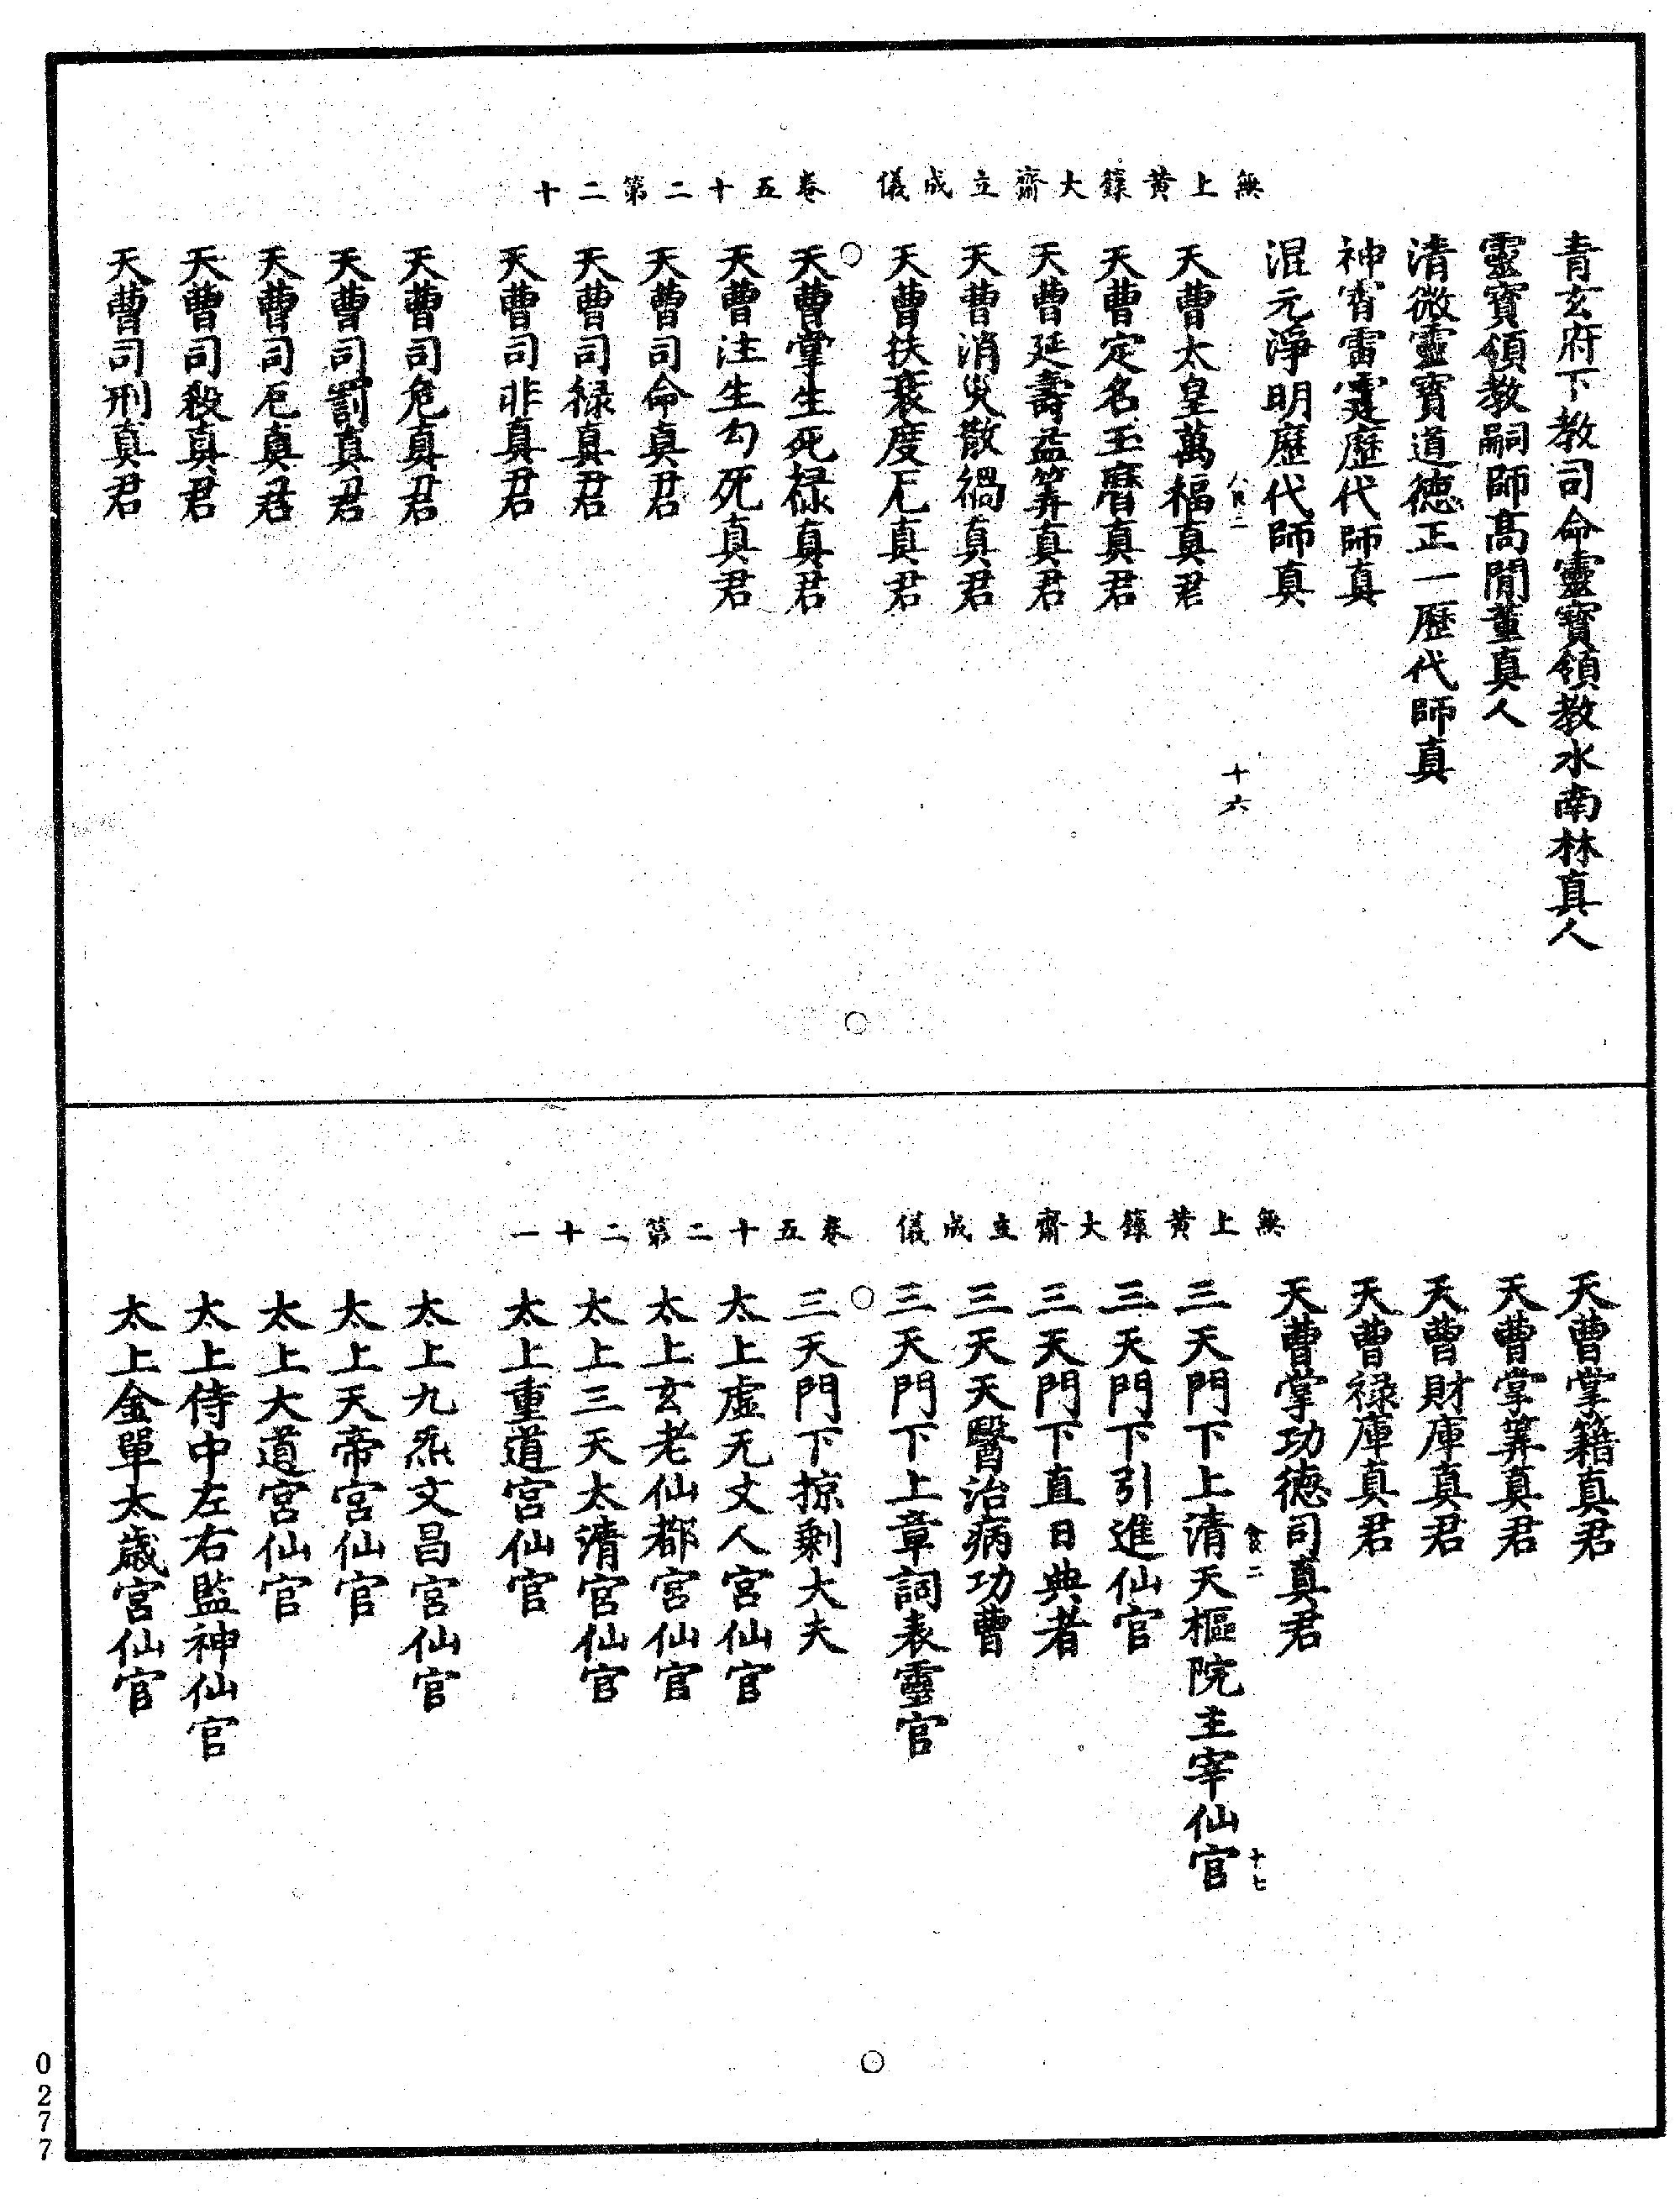 無上黃籙大齋立成儀　卷五十二第二十
青玄府下教司命靈寶領教水南林真人
靈寶領教嗣師高閒董真人
清微靈寶道德正一歷代師真
神霄雷霆歷代師真
混元淨明歷代師真
十六
天曹太皇萬福真君
天曹定名玉曆真君
天曹延壽益筭真君
天曹消災散禍真君
天曹扶衰度厄真君
天曹掌生死祿真君
天曹注生勾死真君
天曹司命真君
天曹司祿真君
天曹司非真君
天曹司危真君
天曹司罰真君
天曹司厄真君
天曹司殺真君
天曹司刑真君
無上黃籙大齋立成儀　卷五十二第二十一
天曹掌籍真君
天曹掌筭真君
天曹財庫真君
天曹祿庫真君
天曹掌功德司真君
食二　十七
三天門下上清天樞院主宰仙官
三天門下引進仙官
三天門下直日典者
三天天醫治病功曹
三天門下上章詞表靈官
三天門下掠剩大夫
太上虛无丈人宮仙官
太上玄老仙都宮仙官
太上三天太清宮仙官
太上重道宮仙官
太上九炁文昌宮仙官
太上天帝宮仙官
太上大道宮仙官
太上侍中左右監神仙官
太上金單太歲宮仙官
0277